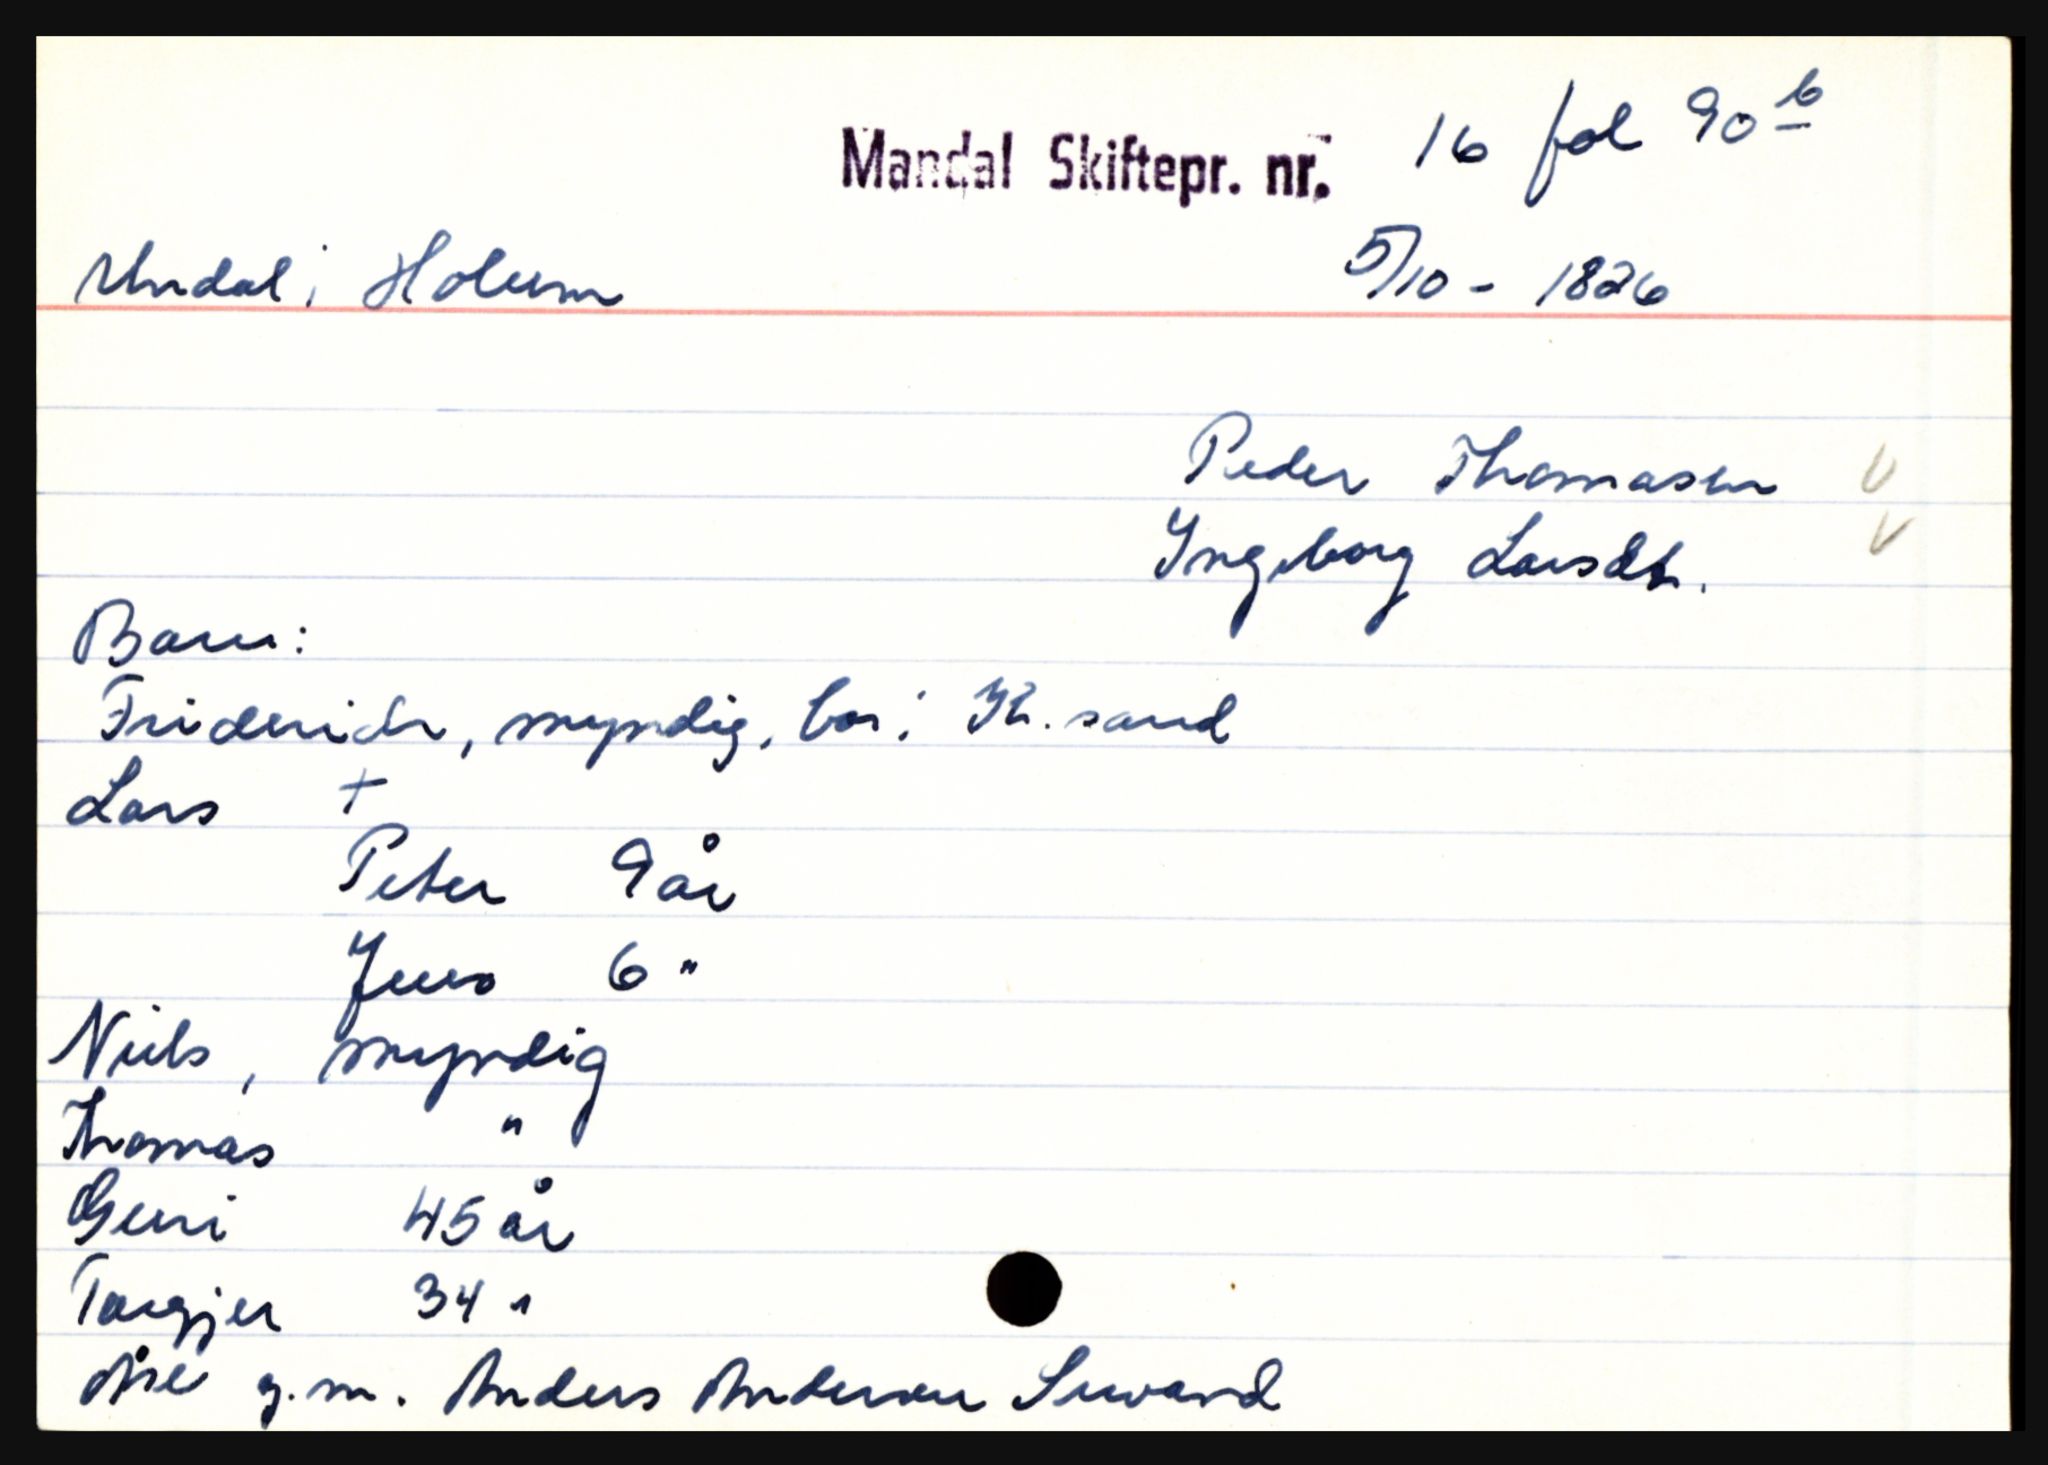 Mandal Skiftepr. nr. 16 fol 90 b
Undal i Holum 5/10 - 1826
Peder Thomasen V
Ingeborg Larsdt. V
Barn:
Friderich, myndig, bor i Kr. sand
Lars +
Peter 9 år
Jens 6 "
Niels, myndig
Thomas "
Guri 45 år
Torgjer 34 "
Åse g.m. Anders Andersen